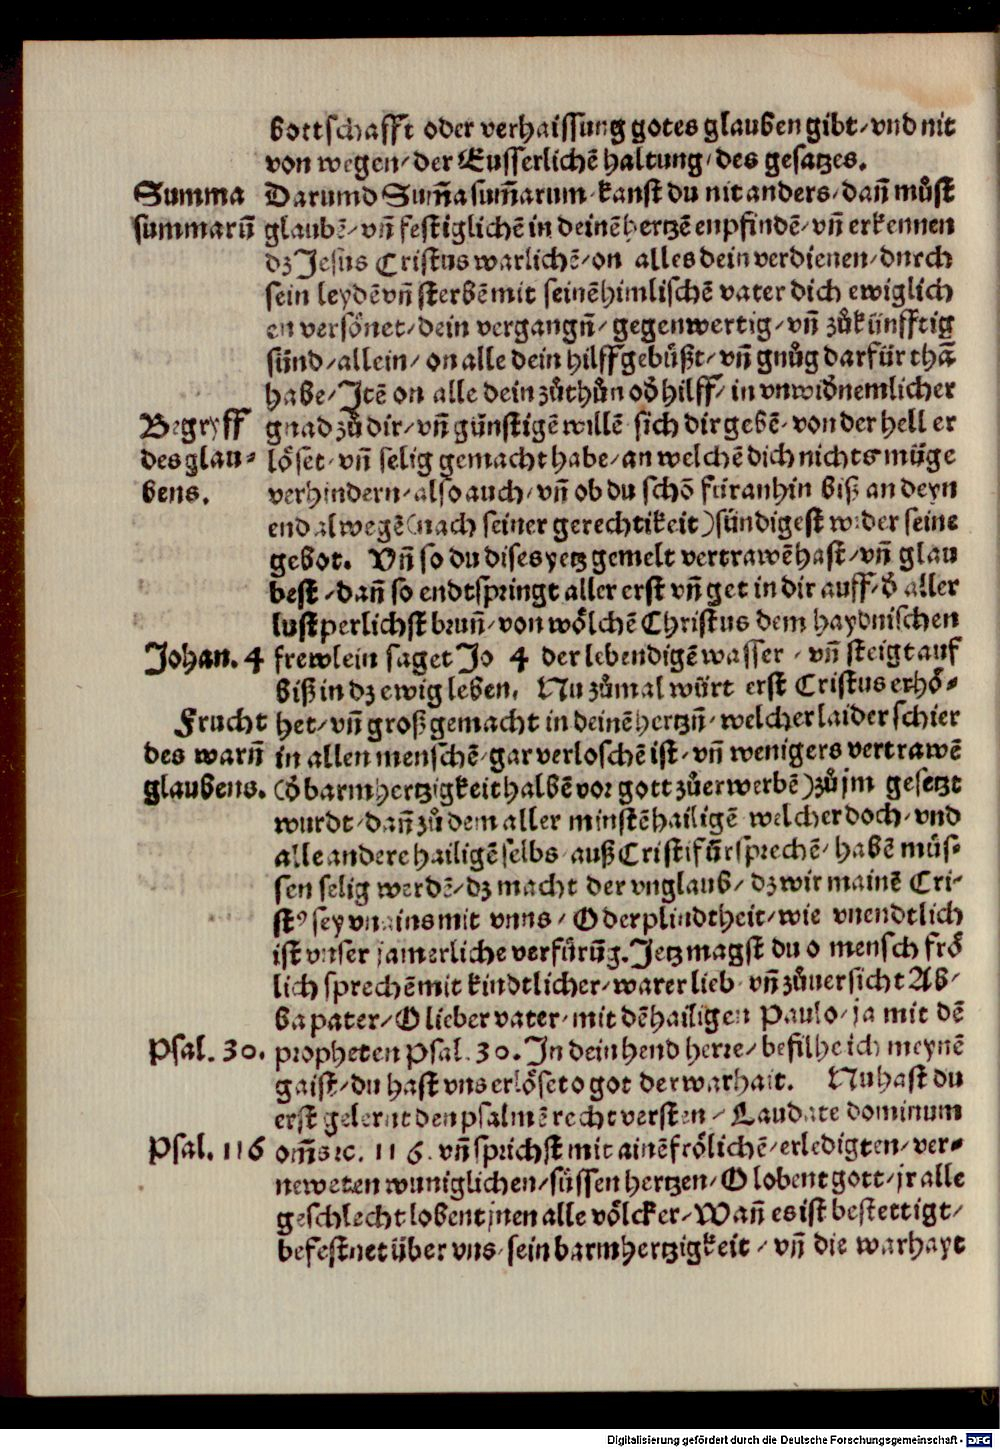 bottschafft oder verhaissung gotes glauben gibt/ vnd nit
von wegen/ der Eusserlichē haltung/ des gesatzes.
Summa
summarū
Darumb Sum̄a sum̄arum/ kanst du nit anders/ dan̄ můst
glaubē/ vn̄ festiglichē in deinē hertzē enpfindē/ vn̄ erkennen
dz Jesus Cristus warlichē/ on alles dein verdienen/ durch
sein leydē vn̄ sterbē mit seinē himlischē vater dich ewiglich
en versönet/ dein vergangn̄/ gegenwertig/ vn̄ zůkünfftig
sünd/ allein/ on alle dein hilff gebůßt/ vn̄ gnůg darfür thā
habe/ Itē on alle dein zůthůn od̄ hilff/ in vnwid̄nemlicher
Begryff
des glau-
bens.
gnad zů dir/ vn̄ günstigē willē sich dir gebē/ von der hell er
löset/ vn̄ selig gemacht habe/ an welchē dich nichts müge
verhindern/ also auch/ vn̄ ob du schō füranhin biß an deyn
end alwegē (nach seiner gerechtikeit) sündigest wider seine
gebot. Vn̄ so du dises yetz gemelt vertrawē hast/ vn̄ glau
best/ dan̄ so endtspringt aller erst vn̄ get in dir auff/ d̄ aller
lustperlichst brun̄/ von wölchē Christus dem haydnischen
Johan. 4
frewlein saget Jo 4 der lebendigē wasser/ vn̄ steigt auf
biß in dz ewig leben. Nu zůmal würt erst Cristus erhö-
Frucht
des warn̄
glaubens.
het/ vn̄ groß gemacht in deinē hertzn̄/ welcher laider schier
in allen menschē/ gar verloschē ist/ vn̄ wenigers vertrawē
(d̄ barmhertzigkeit halbē vor gott zůerwerbē) zů jm gesetzt
wurdt/ dan̄ zů dem aller minstē hailigē welcher doch/ vnd
alle andere hailigē selbs auß Cristi fürsprechē/ habē müs-
sen selig werdē/ dz macht der vnglaub/ dz wir mainē Cri-
stꝰ sey vnains mit vnns/ O der plindtheit/ wie vnendtlich
ist vnser jamerliche verfürūg. Jetz magst du o mensch frö
lich sprechē mit kindtlicher/ warer lieb/ vn̄ zůuersicht Ab/
ba pater/ O lieber vater/ mit dē hailigen Paulo/ ja mit dē
Psal. 30.
propheten Psal. 30. In dein hend herre/ befilhe ich meynē
gaist/ du hast vns erlöset o got der warhait. Nu hast du
erst gelernt den psalmē recht versten/ Laudate dominum
Psal. 116
om̄s ⁊c. 116. vn̄ sprichst mit ainē frölichē/ erledigten/ ver-
neweten wuniglichen/ süssen hertzen/ O lobent gott/ jr alle
geschlecht lobent jnen alle völcker/ Wan̄ es ist bestettigt/
befestnet über vns/ sein barmhertzigkeit/ vn̄ die warhayt
Digitalisierung gefördert durch die Deutsche Forschungsgemeinschaft - DFG